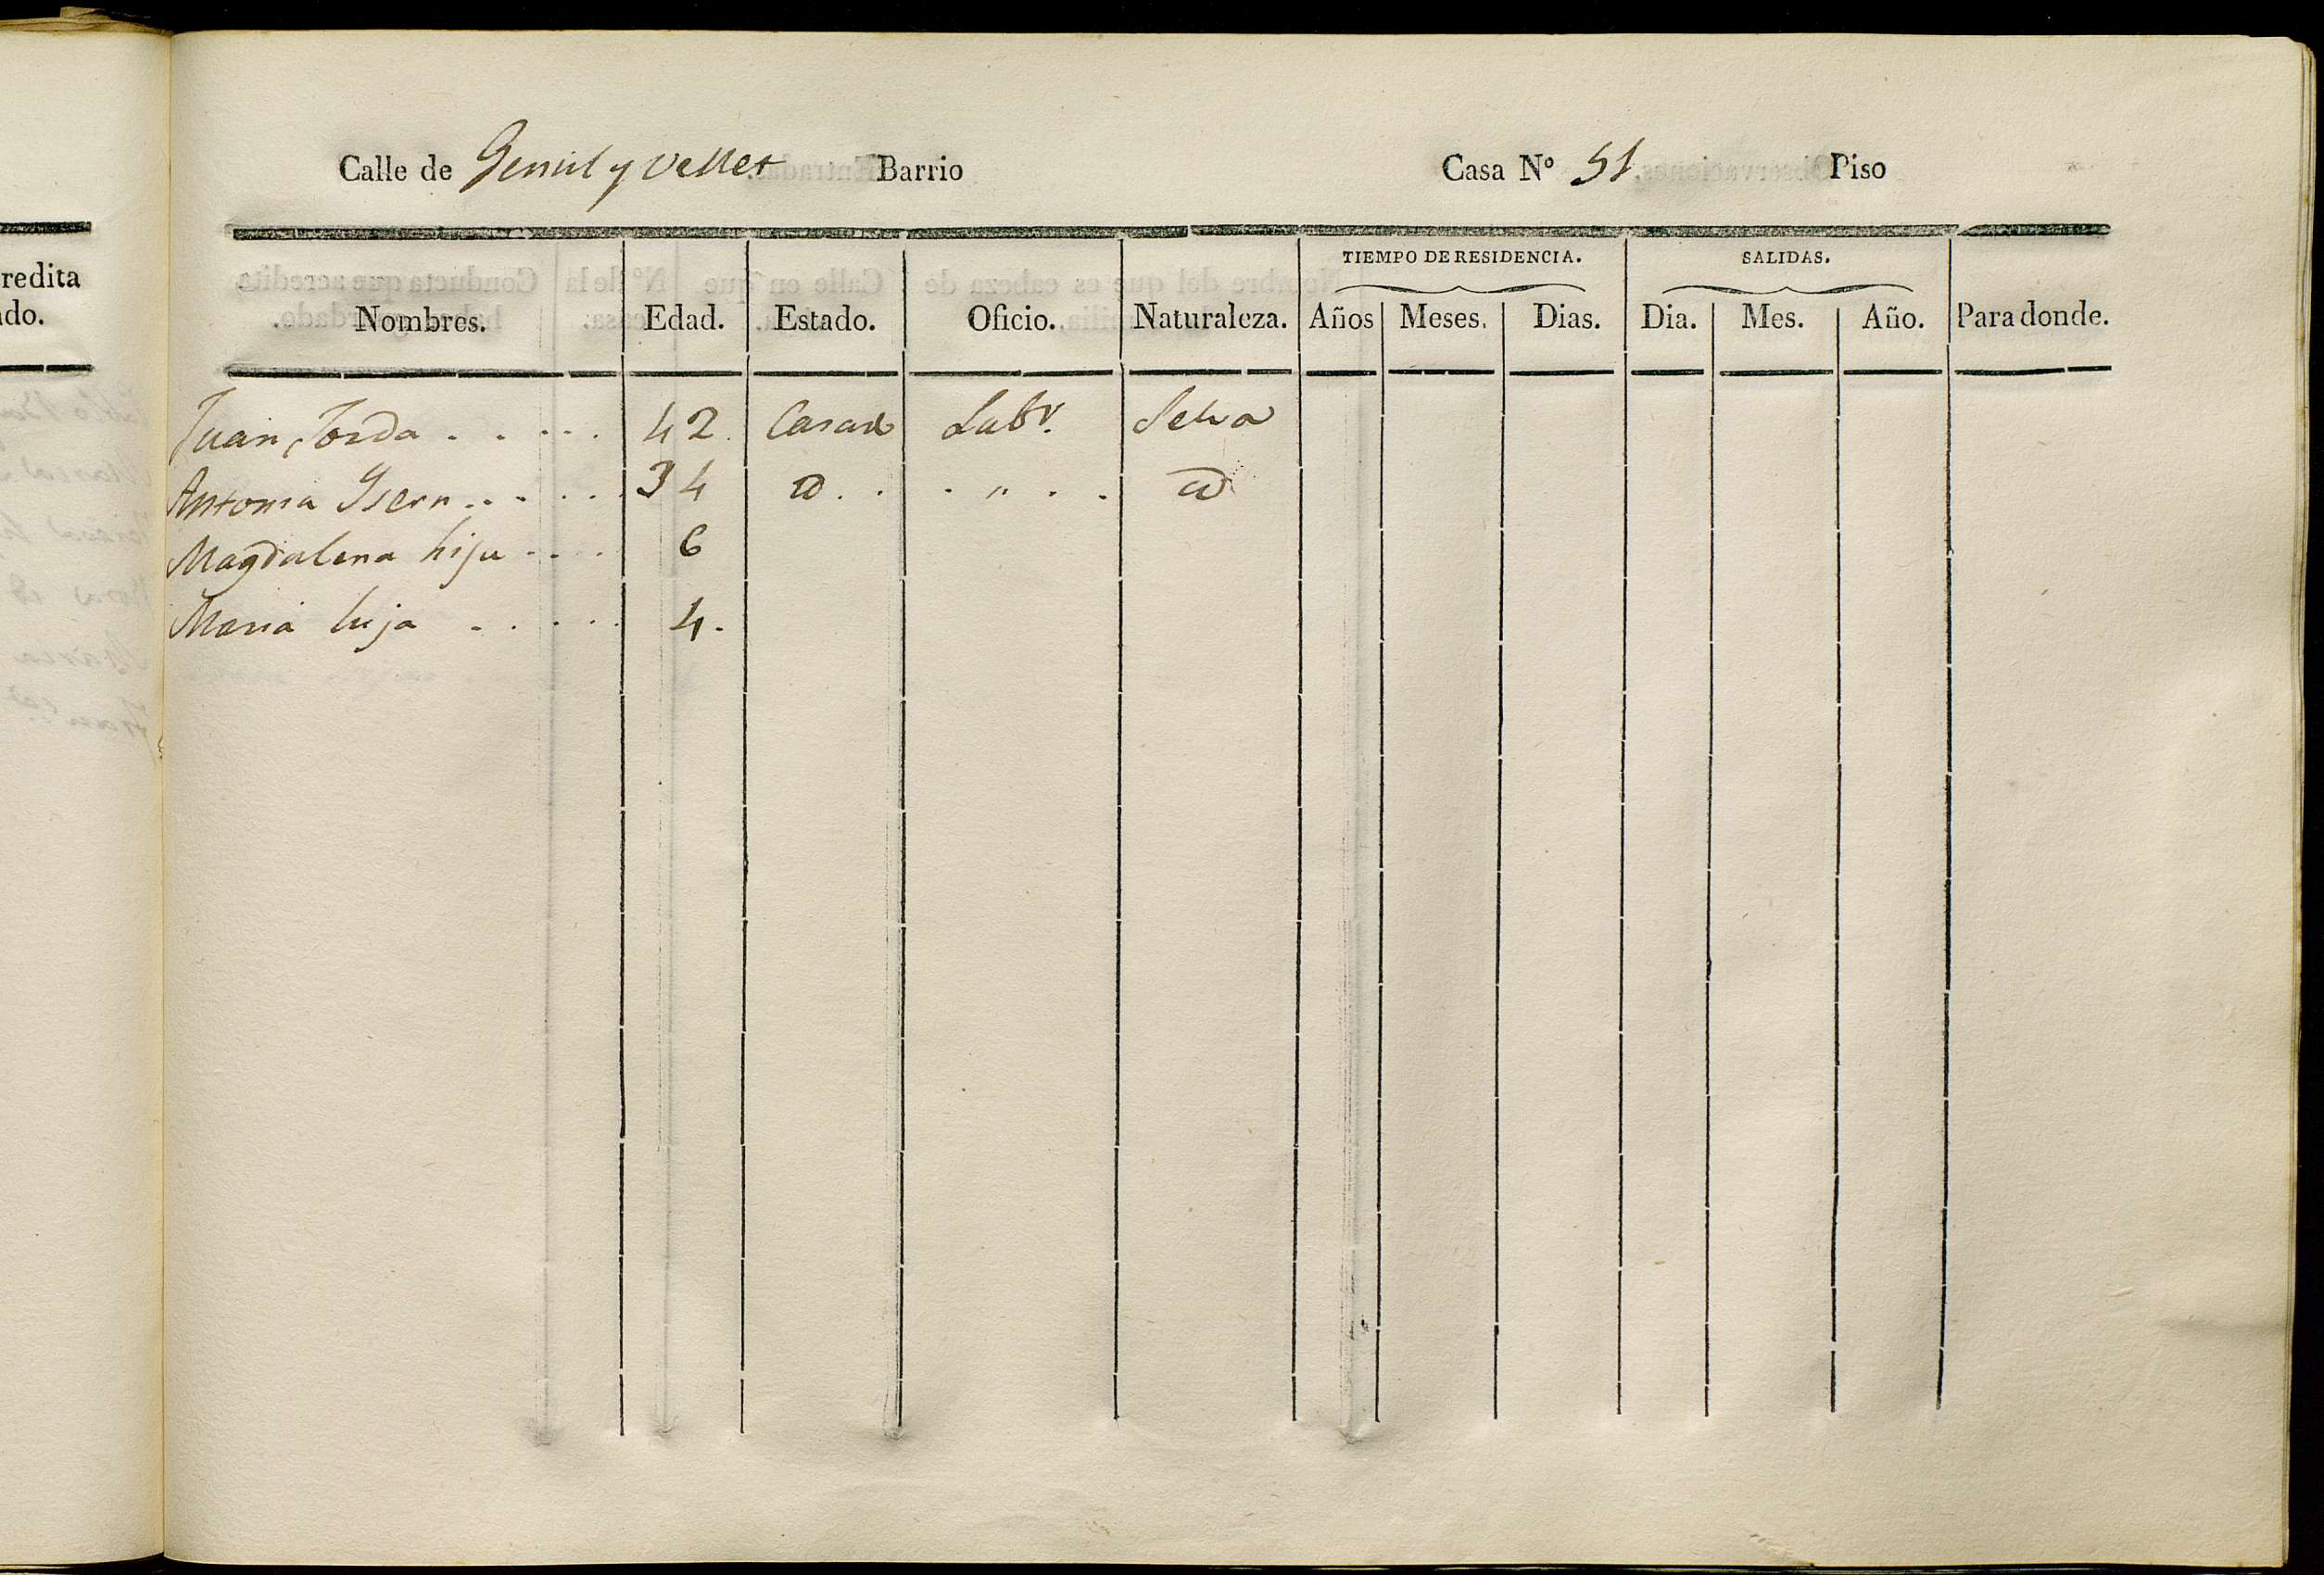 redita
do.
Calle de y Vellet Barrio Casa Nº 51 Piso
TIEMPO DE RESIDENCIA. SALIDAS.
Nombres. Edad. Estado. Oficio. Naturaleza. Años Meses. Dias. Dia. Mes. Año. Para donde.
Juan Jorda . . . . . 42. Casad Labr. Selva
Antonia Isern . . . . . 34 id . . . " . . id
Magdalena hija . . . . 6
Maria hija . . . . . 4.